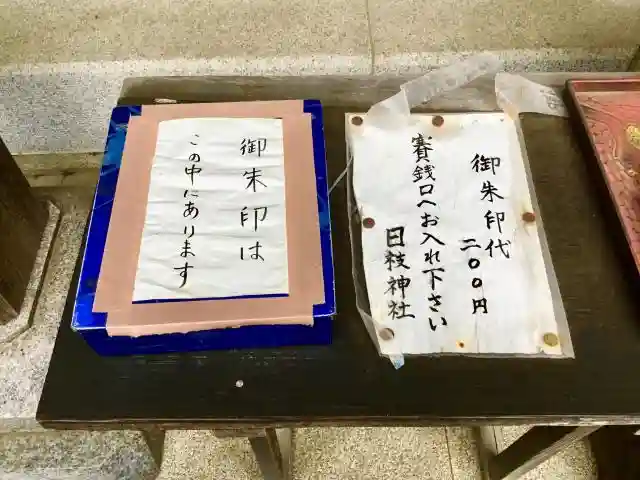 御朱印は
この中にあります
御朱印代
二〇〇円
賽銭口へお入れ下さい
日枝神社